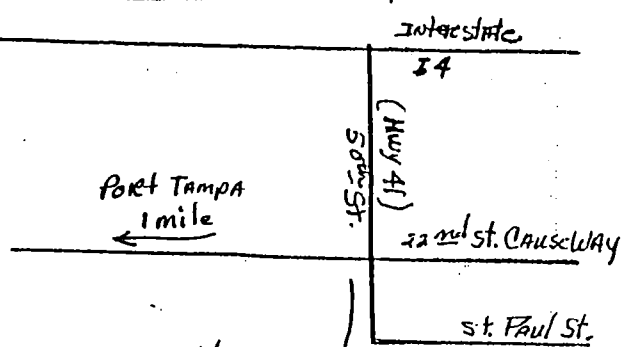 Interstate
I4
(Hwy 41)
50th St.
Port TAMPA
1 mile
22nd St. CAUSEWAY
St. Paul St.